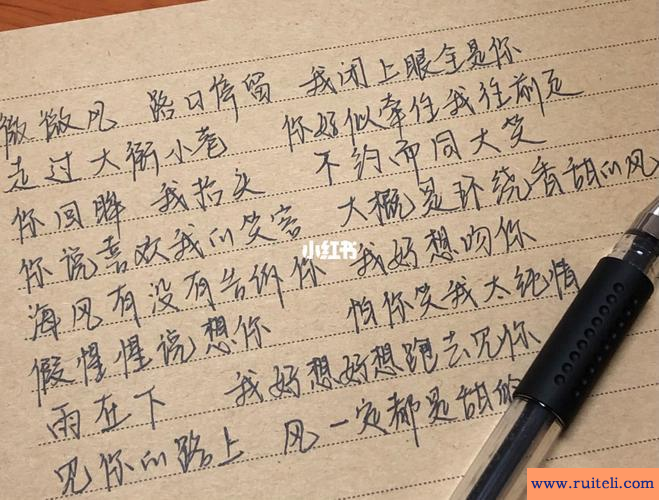 微微风 路口停留 我闭上眼全是你
走过大街小巷 你好似牵住我往前走
你回眸 我抬头 不约而同大笑
你说喜欢我的笑容 大概是环绕香甜的风
小红书
海风有没有告诉你 我好想吻你
假惺惺说想你 怕你笑我太纯情
雨在下 我好想好想跑去见你
见你的路上 风一定都是甜的
www.ruiteli.com